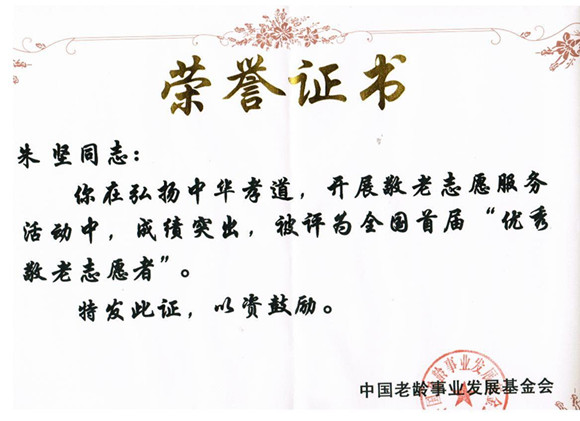 荣誉证书
朱 坚同志：
你在弘扬中华孝道，开展敬老志愿服务
活动中，成绩突出，被评为全国首届“优秀
敬老志愿者”。
特发此证，以资鼓励。
中国老龄事业发展基金会